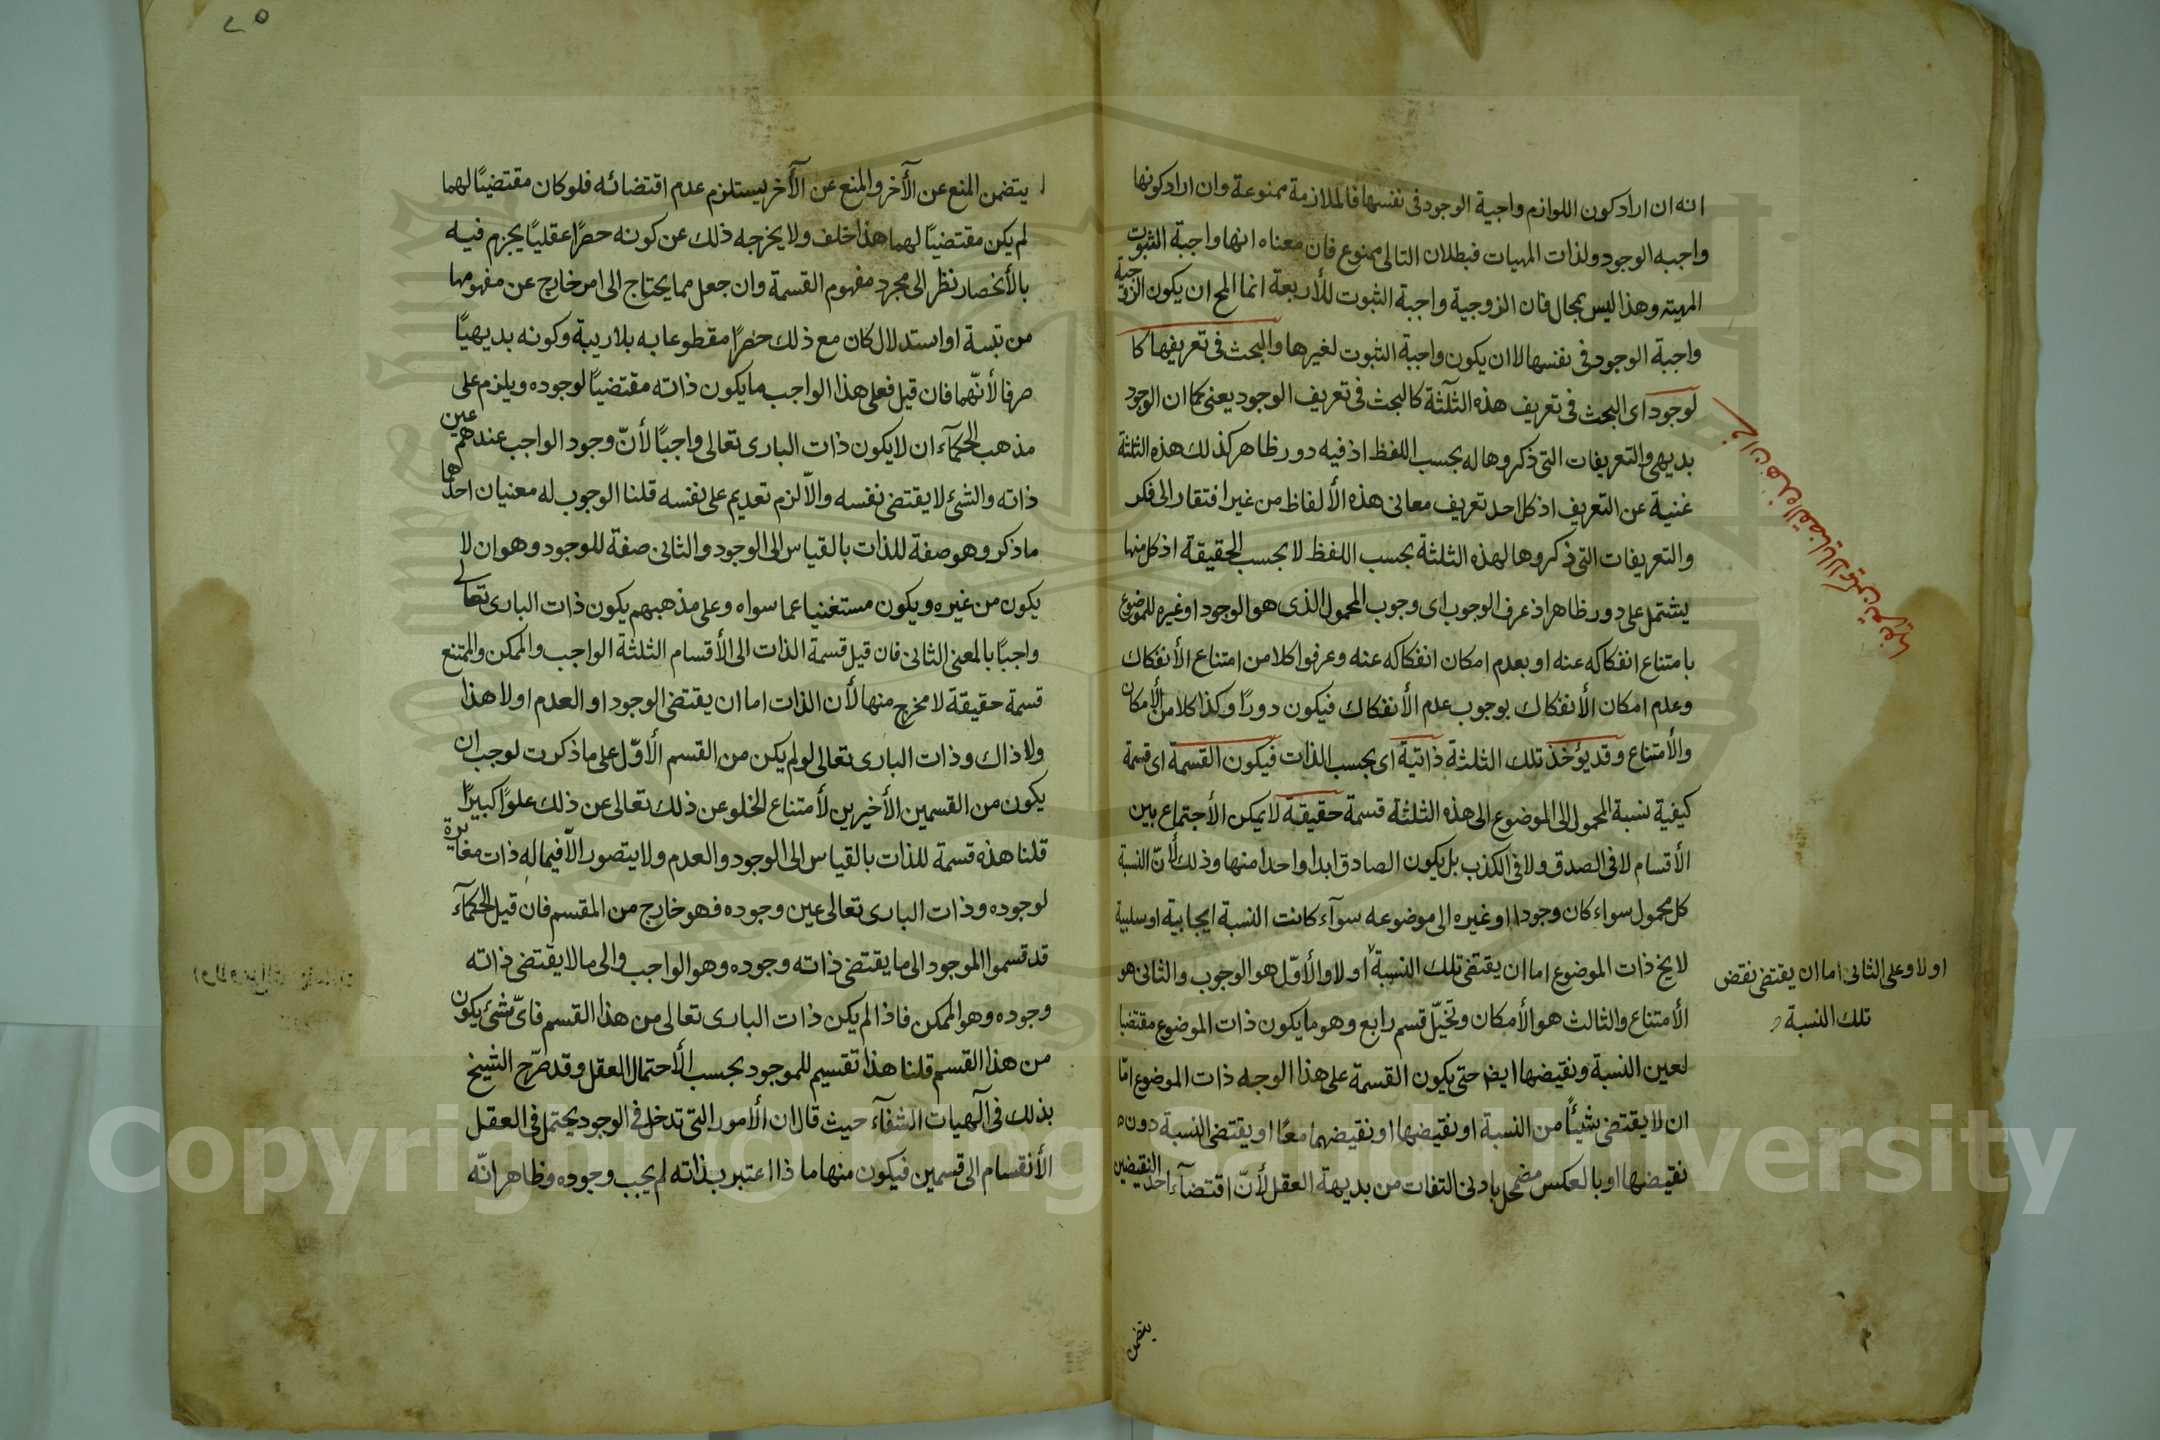 انه ان اراد كون اللوازم واجبة الوجود فى نفسها فالملازمة ممنوعة وان اراد كونها
واجبه الوجود ولذات المهيات فبطلان التالى ممنوع فان معناه انها واجبة الثبوت
المهيته وهذا ليس بمحال فان الزوجية واجبة الثبوت للأربعة انما المح ان يكون الزوجية
واجبة الوجود فى نفسها لا ان يكون واجبة الثبوت لغيرها والبحث فى تعريفها كا
لوجود اى البحث فى تعريف هذه الثلثة كالبحث فى تعريف الوجود يعنى كما ان الوجود
بديهى والتعريفات التى ذكروها له بحسب اللفظ اذ فيه دور ظاهر كذلك هذه الثلثة
غنية عن التعريف اذ كل احد تعريف معانى هذه الألفاظ من غير افتقار الى فكر
والتعريفات التى ذكروها لهذه الثلثة بحسب اللفظ لا بحسب الحقيقة اذ كل منها
يشتمل على دور ظاهر اذ عرف الوجوب اى وجوب المحمول الذى هو الوجود او غيره للموضوع
بامتناع انفكاكه عنه او بعدم امكان انفكاكه عنه وعرفوا كلا من امتناع الأنفكاك
وعدم امكان الأنفكاك بوجوب عدم الأنفكاك فيكون دورًا وكذا كلا من الأمكان
والأمتناع وقد يؤخذ تلك الثلثة ذاتية اى بحسب الذات فيكون القسمة اى قسمة
كيفية نسبة المحمول الى الموضوع الى هذه الثلثة قسمة حقيقة لا يمكن الأجتماع بين
الأقسام لا فى الصدق ولا فى الكذب بل يكون الصادق ابدا واحدا منها وذلك لأنّ النسبة
كل محمول سواء كان وجودا او غيره الى موضوعه سوآء كانت النسبة ايجابية او سلبية
لا يخ ذات الموضوع اما ان يقتضى تلك النسبة او لا والأوّل هو الوجوب والثانى هو
الأمتناع والثالث هو الأمكان وتخيّل قسم رابع وهو ما يكون ذات الموضوع مقتضيا
لعين النسبة ونقيضها ايضا حتى يكون القسمة على هذا الوجه ذات الموضوع امّا
ان لا يقتضى شيئًا من النسبة او نقيضها او نقيضهما معًا او يقتضى النسبة دون
نقيضها او بالعكس مضمحل بادنى التفات من بديهة العقل لأنّ اقتضآء احد النقيضين
يتضمن
او لا وعلى الثانى اما ان يقتضى نقض
تلك النسبة
يتضمن المنع عن الآخر والمنع عن الآخر يستلزم عدم اقتضائه فلو كان مقتضيًا لهما
لم يكن مقتضيًا لهما هذا خلف ولا يخرجه ذلك عن كونه حصرًا عقليًا يجزم فيه
بالأنحصار نظر الى مجرد مفهوم القسمة وان جعل مما يحتاج الى امر خارج عن مفهومها
من تبسة او استدلال كان مع ذلك حصرًا مقطوعا به بلا ريبة وكونه بديهيًا
صرفا لأنّهما فان قيل فعلى هذا الواجب ما يكون ذاته مقتضيًا لوجوده ويلزم على
مذهب الحكمآء ان لا يكون ذات البارى تعالى واجبًا لأنّ وجود الواجب عندهم عين
ذاته والشئ لا يقتضى نفسه والّا لزم تعديم على نفسه قلنا الوجوب له معنيان احدها
ما ذكر وهو صفة للذات بالقياس الى الوجود والثانى صفة للوجود وهو ان لا
يكون من غيره ويكون مستغنيا عما سواه وعلى مذهبهم يكون ذات البارى تعالى
واجبًا بالمعنى الثانى فان قيل قسمة الذات الى الأقسام الثلثة الواجب والممكن والممتنع
قسمة حقيقة لا مخرج منها لأن الذات اما ان يقتضى الوجود او العدم او لا هذا
ولا ذاك وذات البارى تعالى لو لم يكن من القسم الأوّل على ما ذكرت لوجب ان
يكون من القسمين الأخيرين لأمتناع الخلو عن ذلك تعالى عن ذلك علوًا كبيرًا
قلنا هذه قسمة للذات بالقياس الى الوجود والعدم ولا يتصور الّا فيما له ذات مغايرة
لوجوده وذات البارى تعالى عين وجوده فهو خارج من المقسم فان قيل الحكمآء
قد قسموا الموجود الى ما يقتضى ذاته وجوده وهو الواجب والى ما لا يقتضى ذاته
وجوده وهو الممكن فاذا لم يكن ذات البارى تعالى من هذا القسم فاىّ شئ يكون
من هذا القسم قلنا هذا تقسيم للموجود بحسب الأحتمال العقل وقد صرّح الشيخ
بذلك فى آلهيات الشفآء حيث قال ان الأمور التى تدخل فى الوجود يحتمل فى العقل
الأنقسام الى قسمين فيكون منها ما ذا اعتبر بذاته لم يجب وجوده وظاهر انّه
Copyright © King Saud University